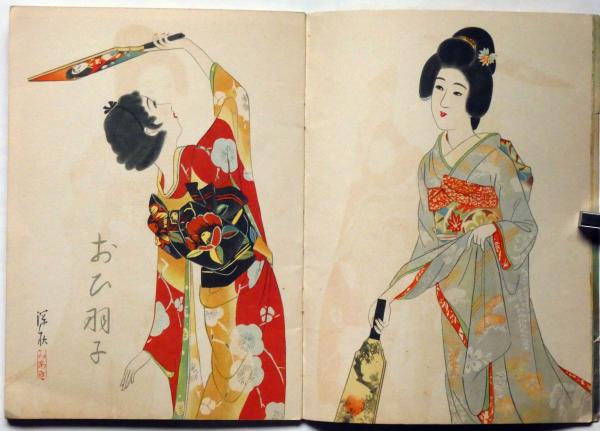 おひ羽子
深秋